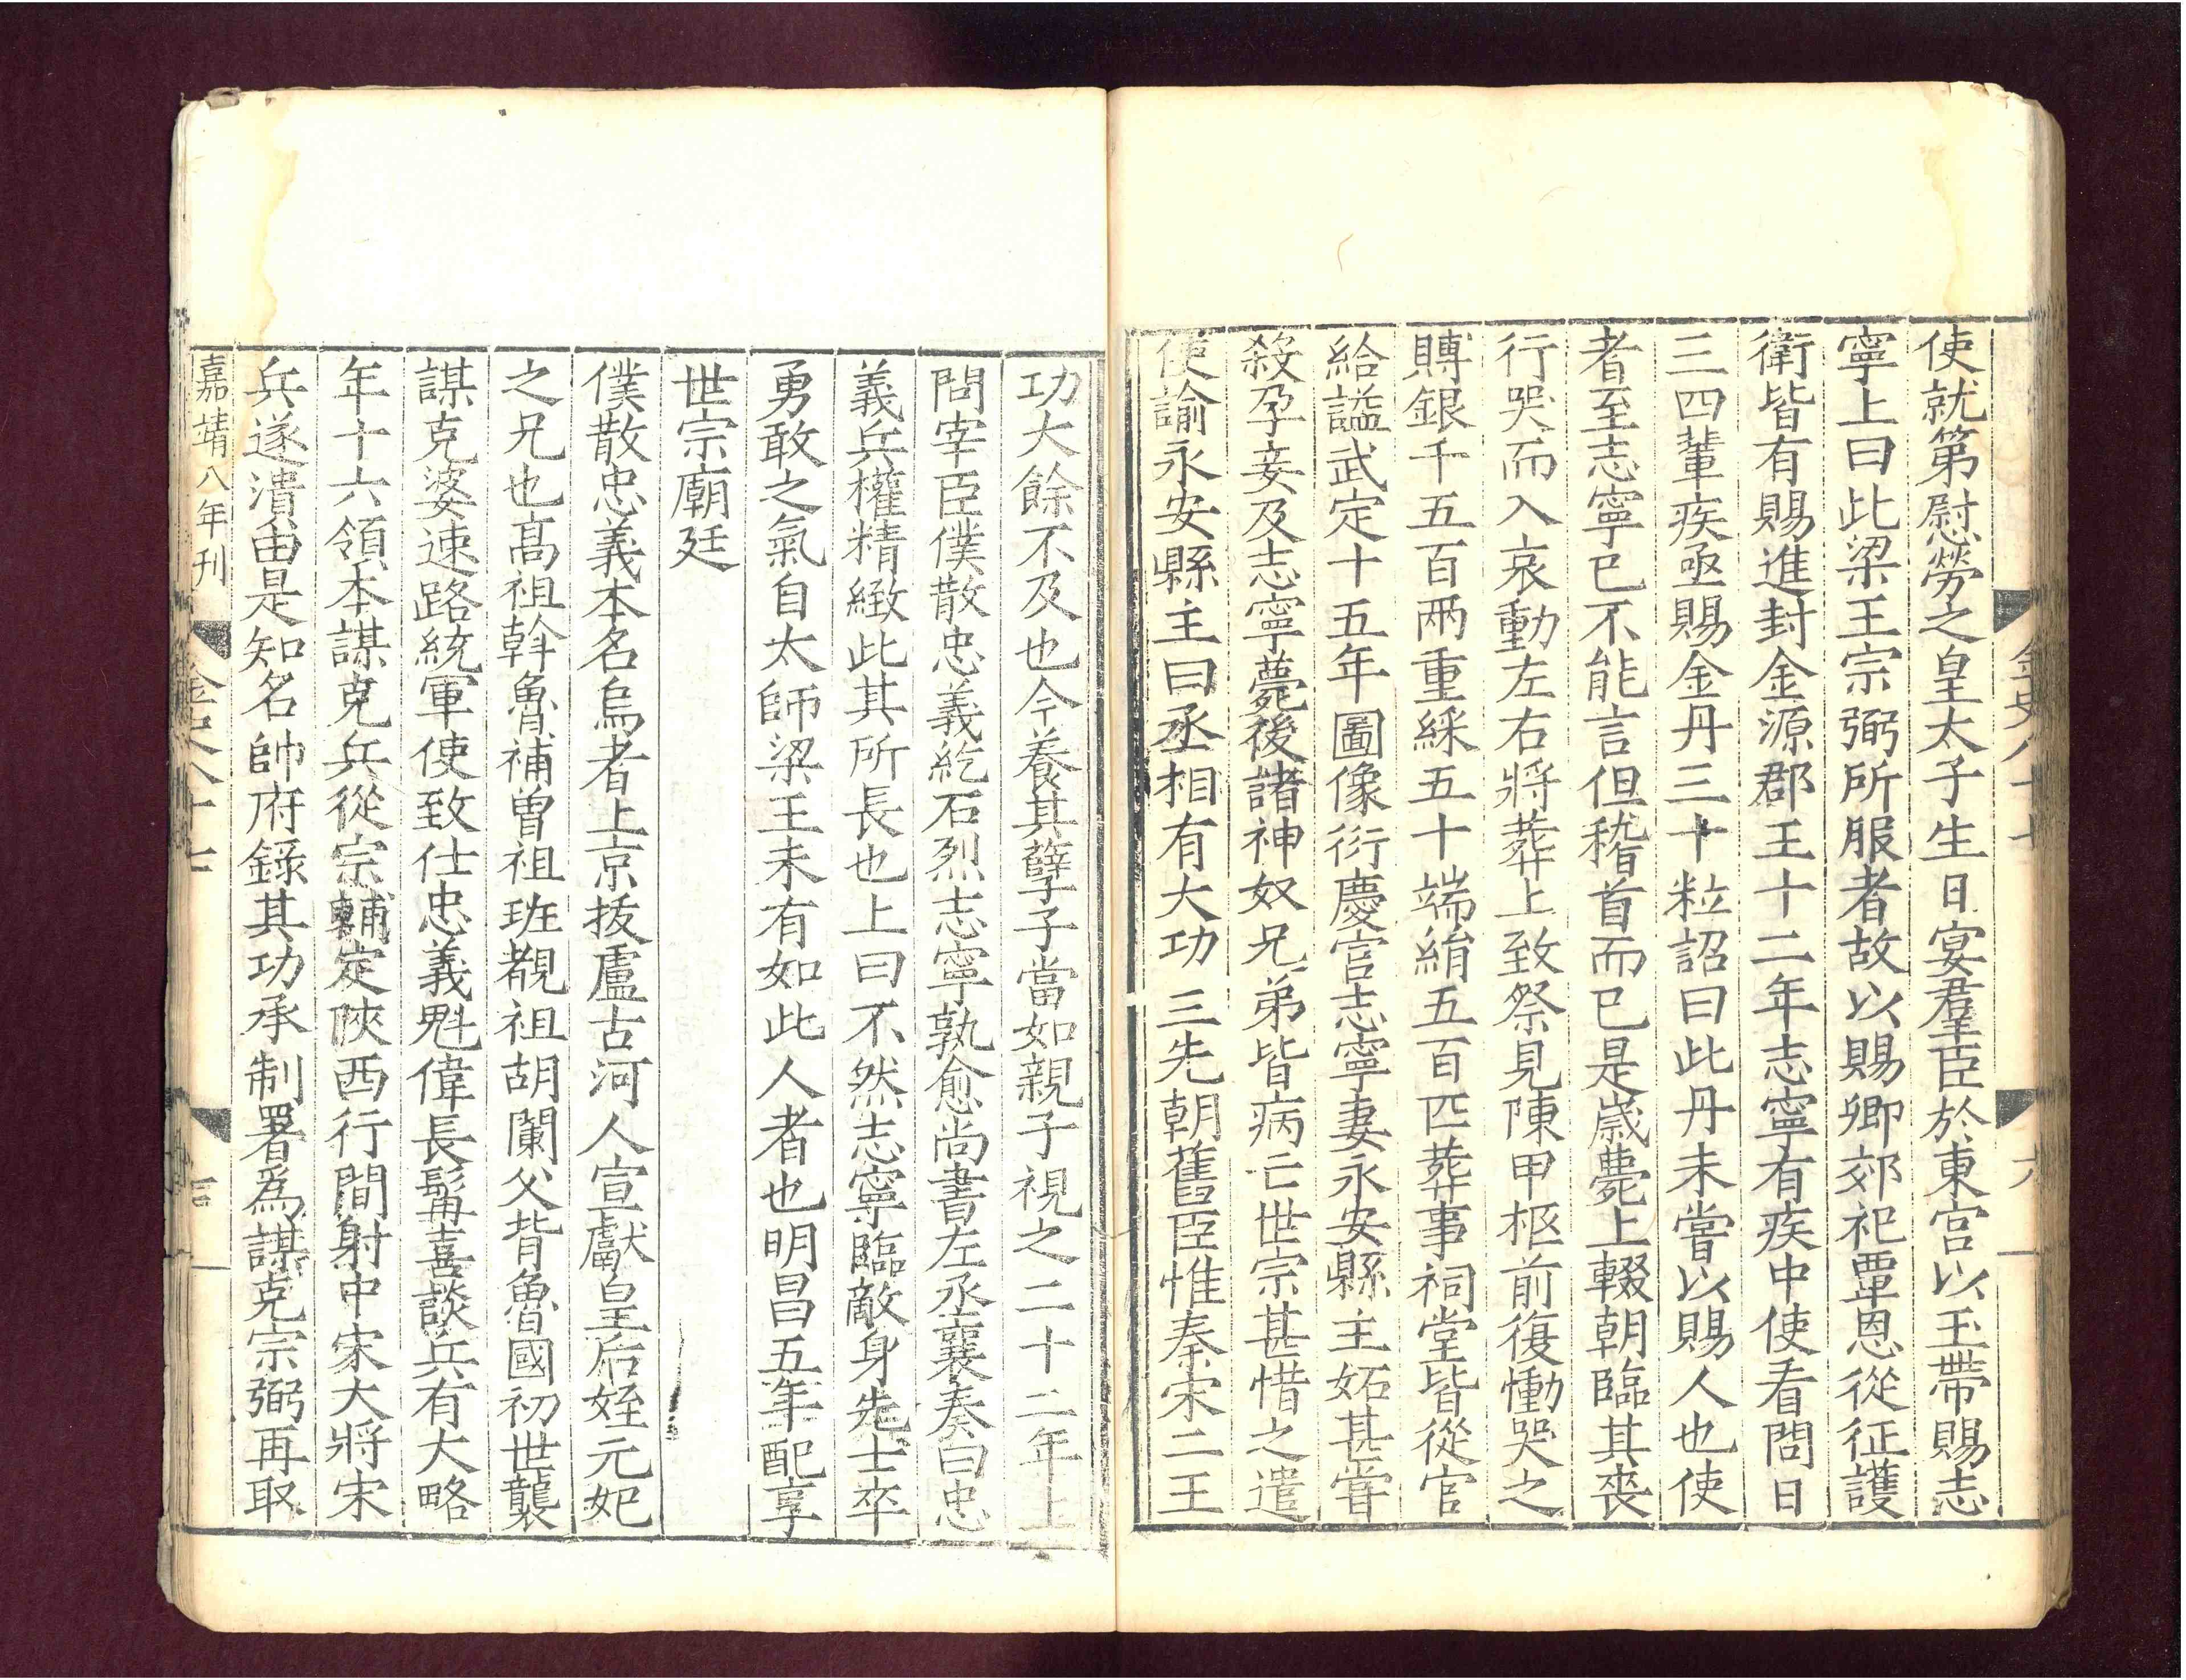 使就第慰勞之皇太子生日宴羣臣於東宮以玉帶賜志
寧上曰此梁王宗弼所服者故以賜卿郊祀覃恩從征護
衛皆有賜進封金源郡王十二年志寧有疾中使看問日
三四輩疾亟賜金丹三十粒詔曰此丹未嘗以賜人也使
者至志寧已不能言但稽首而已是歲薨上輟朝臨其喪
行哭而入哀動左右將葬上致祭見陳甲柩前復慟哭之
賻銀千五百兩重綵五十端絹五百匹葬事祠堂皆從官
給謚武定十五年圖像衍慶宮志寧妻永安縣主妬甚嘗
殺孕妾及志寧薨後諸神奴兄弟皆病亡世宗甚惜之遣
使諭永安縣主曰丞相有大功三先朝舊臣惟秦宋二王
金史八十七
六
功大餘不及也今養其孽子當如親子視之二十二年上
問宰臣僕散忠義紇石烈志寧孰愈尚書左丞襄奏曰忠
義兵權精緻此其所長也上曰不然志寧臨敵身先士卒
勇敢之氣自太師梁王未有如此人者也明昌五年配享
世宗廟廷
僕散忠義本名烏者上京拔盧古河人宣獻皇后姪元妃
之兄也高祖斡魯補曾祖班覩祖胡闌父背魯國初世襲
謀克婆速路統軍使致仕忠義魁偉長髯喜談兵有大略
年十六領本謀克兵從宗輔定陝西行間射中宋大將宋
兵遂潰由是知名帥府錄其功承制署爲謀克宗弼再取
嘉靖八年刊
金史八十七